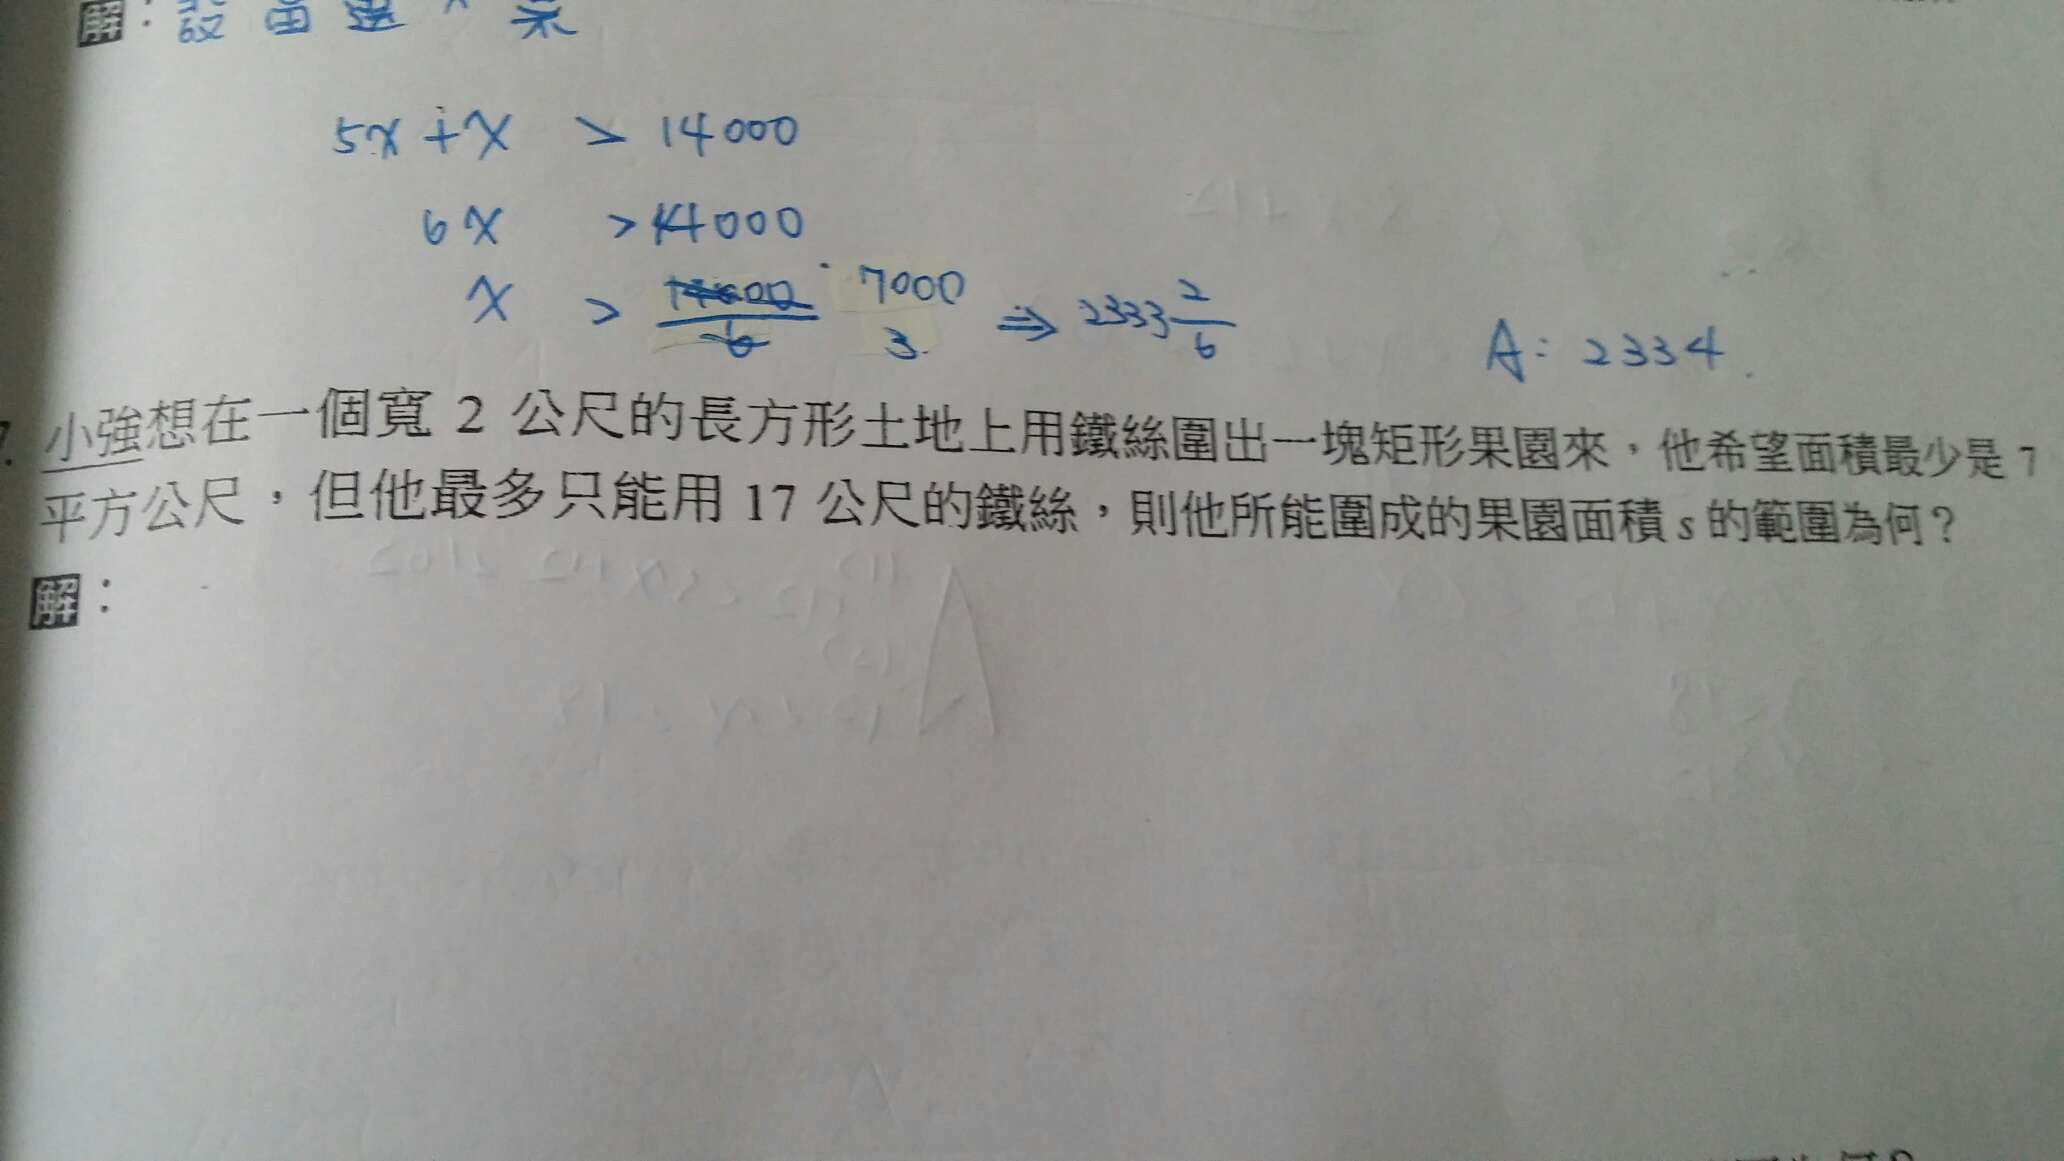 解：設當選 x 票
5x + x > 14000
6x > 14000
x > 14000/6 7000/3 ⇒ 2333 2/6
A: 2334
7. 小強想在一個寬 2 公尺的長方形土地上用鐵絲圍出一塊矩形果園來，他希望面積最少是 7
平方公尺，但他最多只能用 17 公尺的鐵絲，則他所能圍成的果園面積 s 的範圍為何？
解：